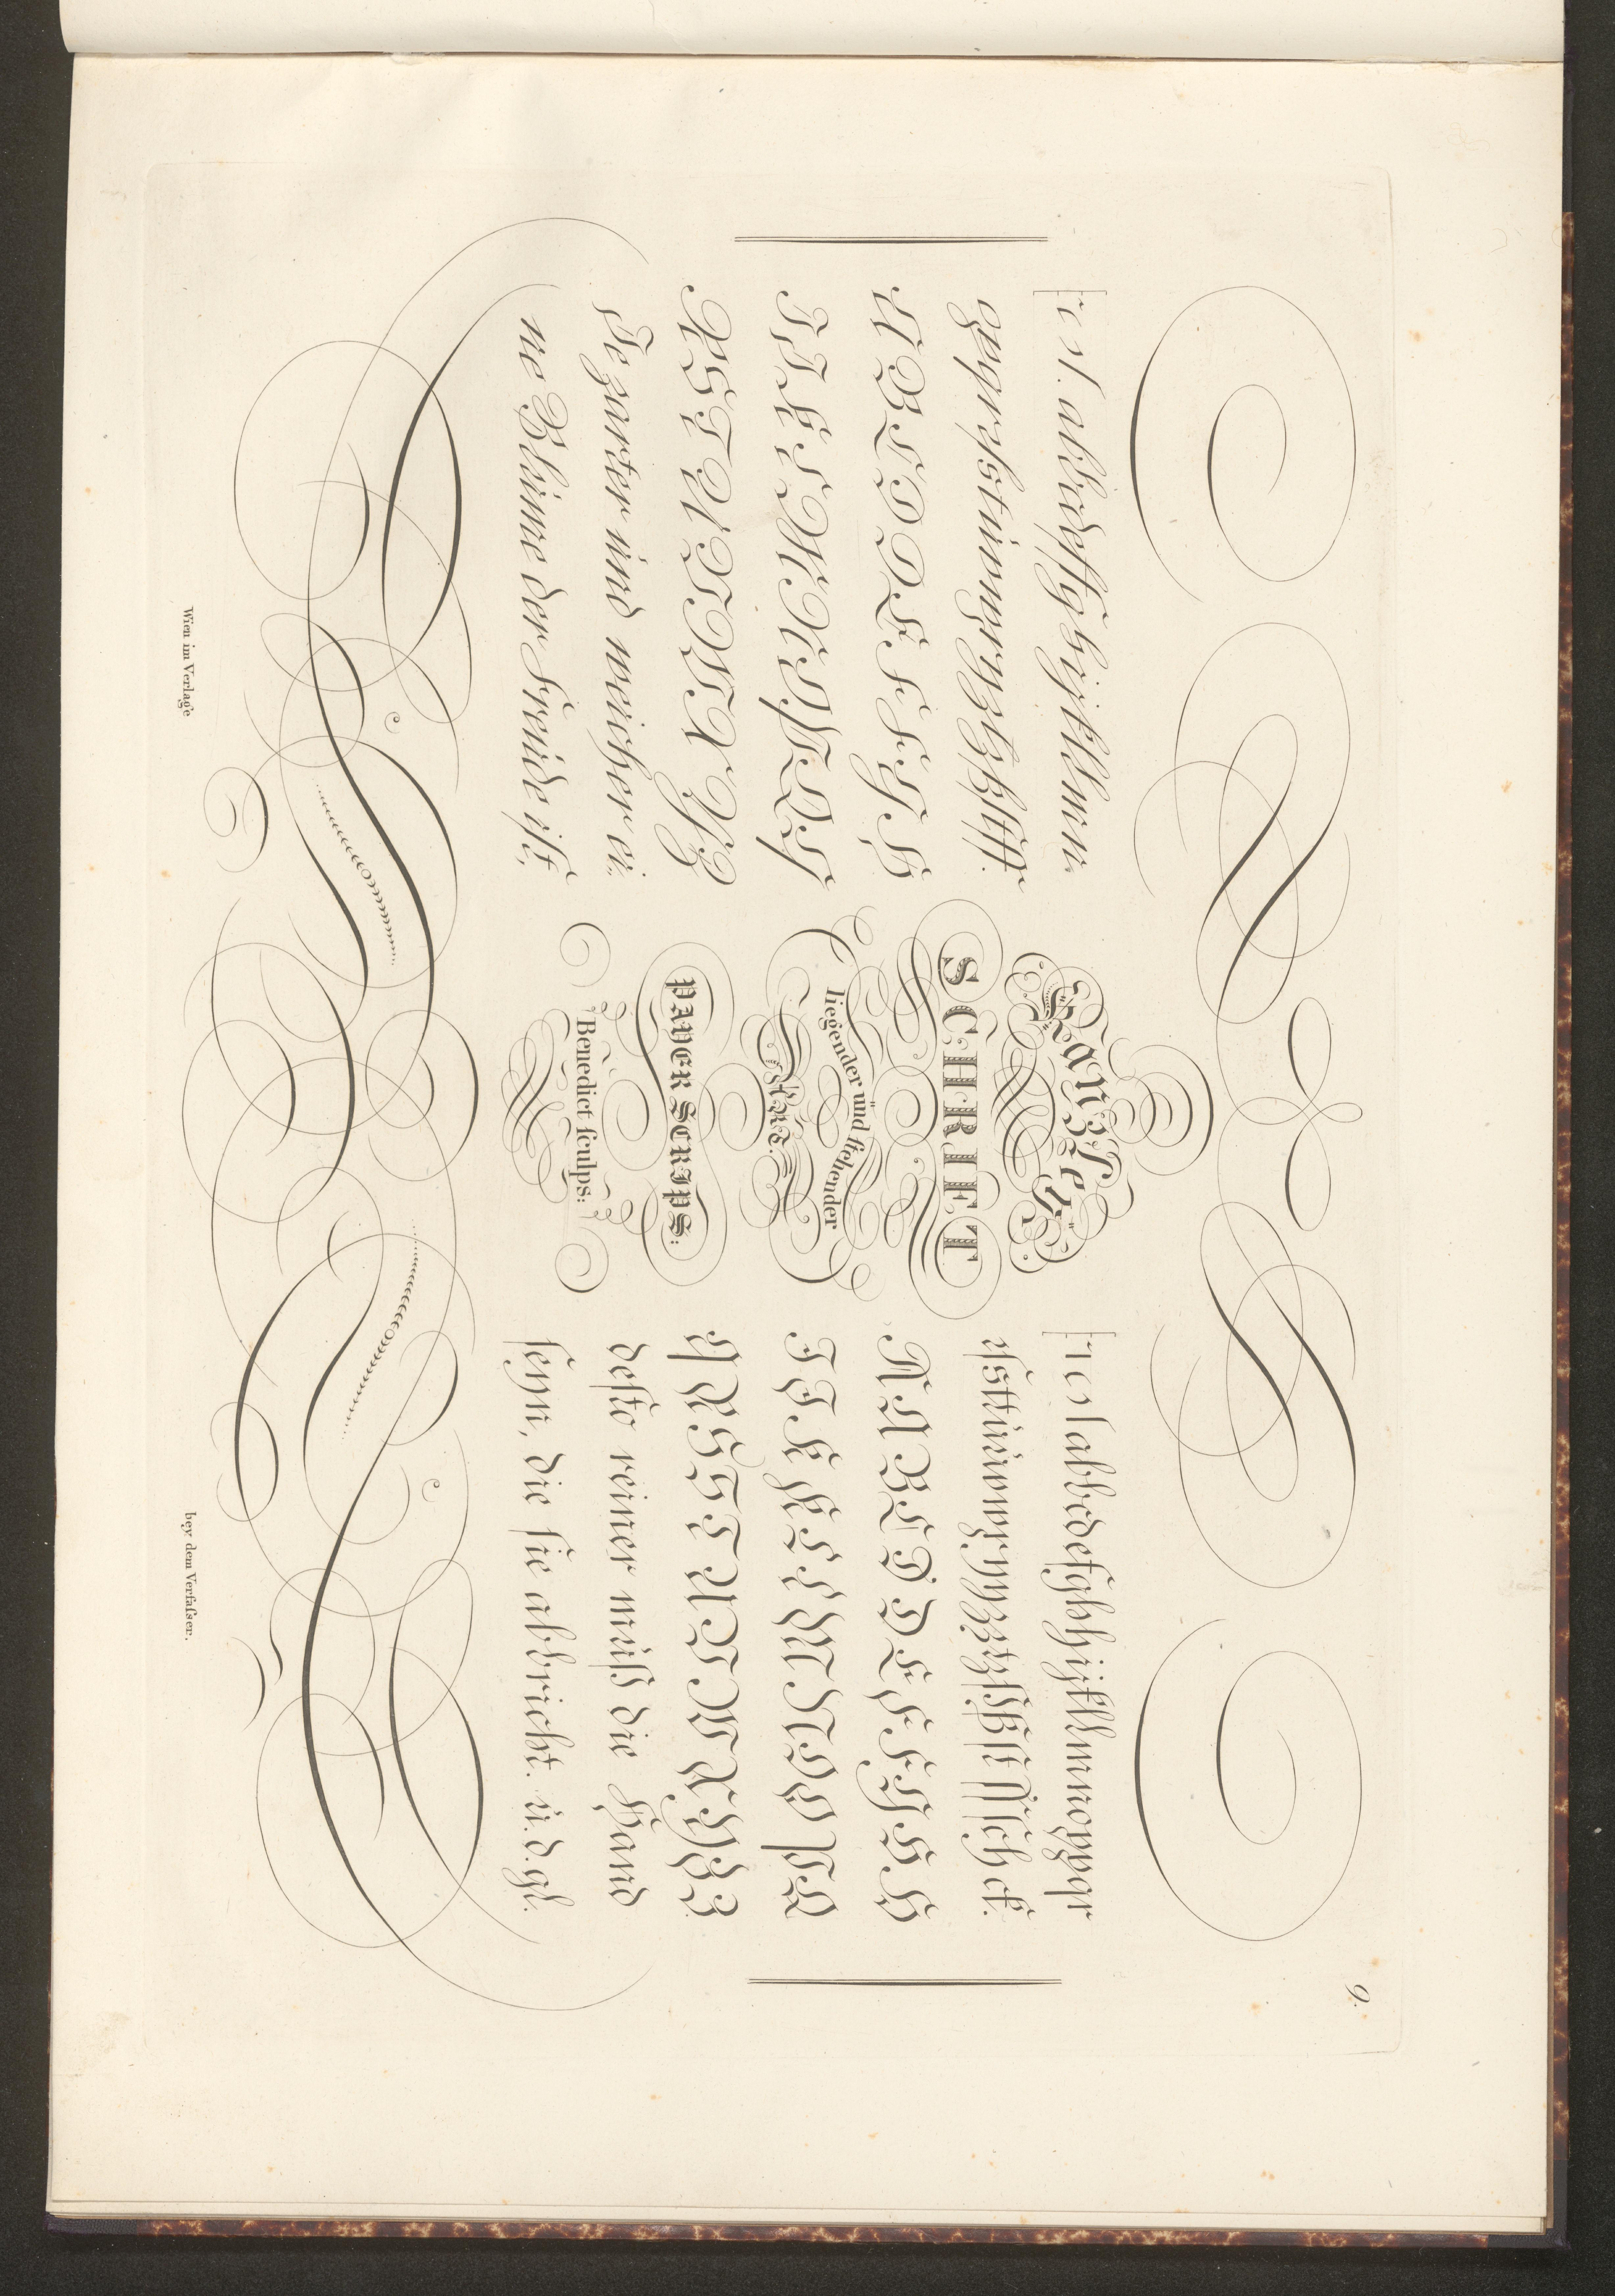 9.
Kanzley
SCHRIFT
liegender und stehender
ART.
PAYER SCRIPS:
Benedict ſculps:
abbcdeffghhijkllmn
A B C D D D E F F G H
I J K L M N O P Q
R S T U V W X Y Z
Je zarter und weicher ei-
ne Blume der Freude iſt,
A A B C D D E F F G H H
I J K K L L M N O O P Q
R S S T U V W X Y Z Z
deſto reiner muß die Hand
ſeyn, die ſie abbricht. u. d. gl.
Wien im Verlage
bey dem Verfaſser.